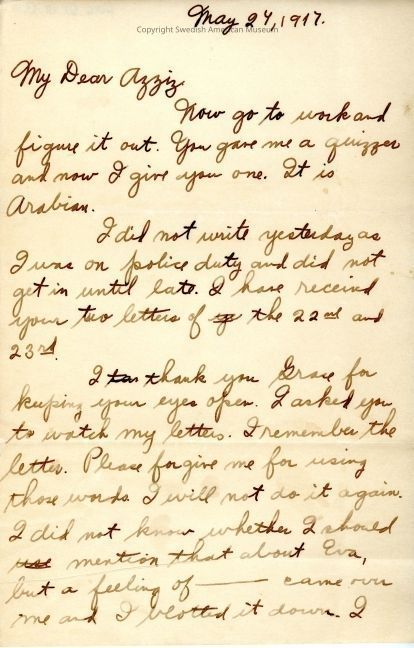 May 24, 1917.
Copyright Swedish American Museum
My Dear Azziz,
Now go to work and
figure it out. You gave me a quizzer
and now I give you one. It is
Arabian.
I did not write yesterday as
I was on police duty and did not
get in until late. I have receivd
your two letters of the 22nd and
23rd.
I thank you Grace for
keeping your eyes open. I asked you
to watch my letters. I remember the
letter. Please forgive me for using
those words. I will not do it again.
I did not know whether I should
mention that about Eva,
but a feeling of —— came over
me and I blotted it down. I